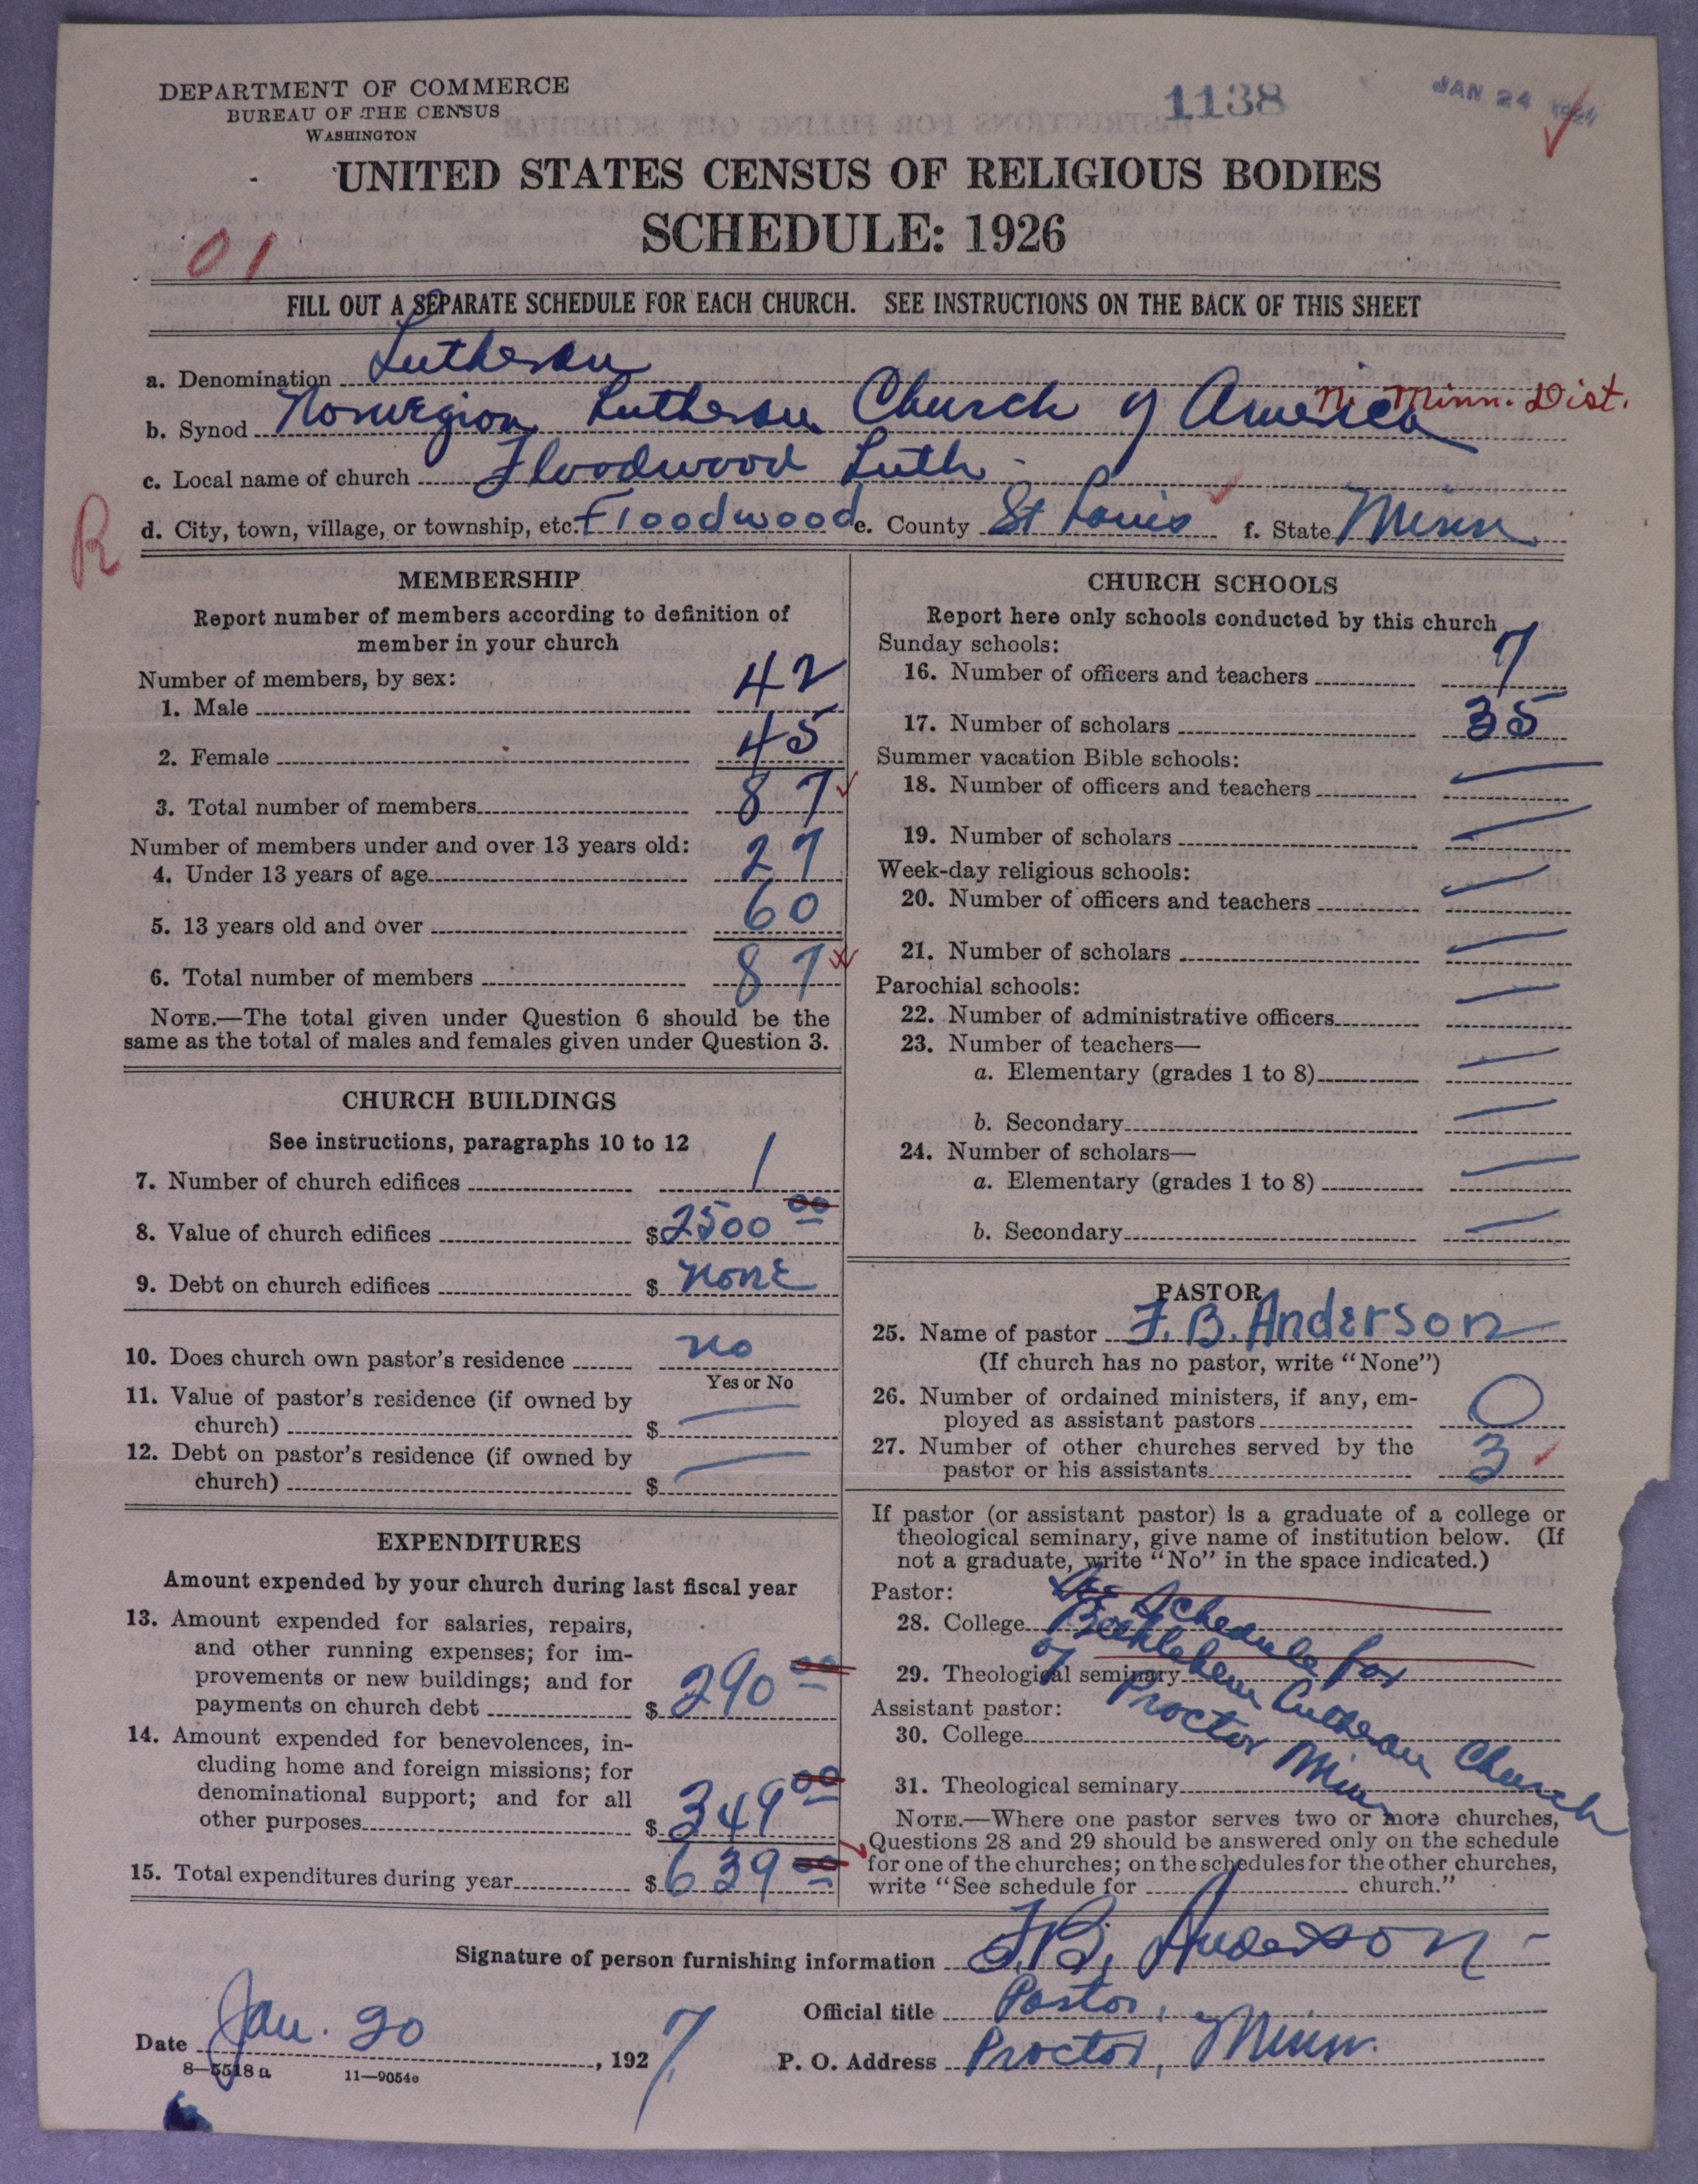 DEPARTMENT OF COMMERCE
BUREAU OF THE CENSUS
WASHINGTON
1138
JAN 24
UNITED STATES CENSUS OF RELIGIOUS BODIES
SCHEDULE: 1926
01
FILL OUT A SEPARATE SCHEDULE FOR EACH CHURCH. SEE INSTRUCTIONS ON THE BACK OF THIS SHEET
a. Denomination Lutheran
N. Minn. Dist.
b. Synod Norwegian Lutheran Church of America
c. Local name of church Floodwood Luth.
R
d. City, town, village, or township, etc. Floodwood e. County St Louis f. State Minn.
MEMBERSHIP
Report number of members according to definition of
member in your church
Number of members, by sex:
1. Male 42
2. Female 45
3. Total number of members 87
Number of members under and over 13 years old:
4. Under 13 years of age 27
5. 13 years old and over 60
6. Total number of members 87
NOTE.—The total given under Question 6 should be the
same as the total of males and females given under Question 3.
CHURCH BUILDINGS
See instructions, paragraphs 10 to 12
7. Number of church edifices 1
8. Value of church edifices $ 2500 00
9. Debt on church edifices $ none
10. Does church own pastor's residence no
Yes or No
11. Value of pastor's residence (if owned by
church) $ —
12. Debt on pastor's residence (if owned by
church) $ —
EXPENDITURES
Amount expended by your church during last fiscal year
13. Amount expended for salaries, repairs,
and other running expenses; for im-
provements or new buildings; and for
payments on church debt $ 290 00
14. Amount expended for benevolences, in-
cluding home and foreign missions; for
denominational support; and for all
other purposes $ 349 00
15. Total expenditures during year $ 639 00
CHURCH SCHOOLS
Report here only schools conducted by this church
Sunday schools:
16. Number of officers and teachers 7
17. Number of scholars 35
Summer vacation Bible schools:
18. Number of officers and teachers —
19. Number of scholars —
Week-day religious schools:
20. Number of officers and teachers —
21. Number of scholars —
Parochial schools:
22. Number of administrative officers —
23. Number of teachers—
a. Elementary (grades 1 to 8) —
b. Secondary —
24. Number of scholars—
a. Elementary (grades 1 to 8) —
b. Secondary —
PASTOR
25. Name of pastor F. B. Anderson
(If church has no pastor, write "None")
26. Number of ordained ministers, if any, em-
ployed as assistant pastors 0
27. Number of other churches served by the
pastor or his assistants 3
If pastor (or assistant pastor) is a graduate of a college or
theological seminary, give name of institution below. (If
not a graduate, write "No" in the space indicated.)
Pastor:
28. College
29. Theological seminary
Assistant pastor:
30. College
31. Theological seminary
See Schedule for
Bethlehem Lutheran Church
of Proctor Minn
NOTE.—Where one pastor serves two or more churches,
Questions 28 and 29 should be answered only on the schedule
for one of the churches; on the schedules for the other churches,
write "See schedule for church."
Signature of person furnishing information F. B. Anderson
Official title Pastor,
Date Jan. 20, 1927
P. O. Address Proctor, Minn.
8—5518 a 11—9054